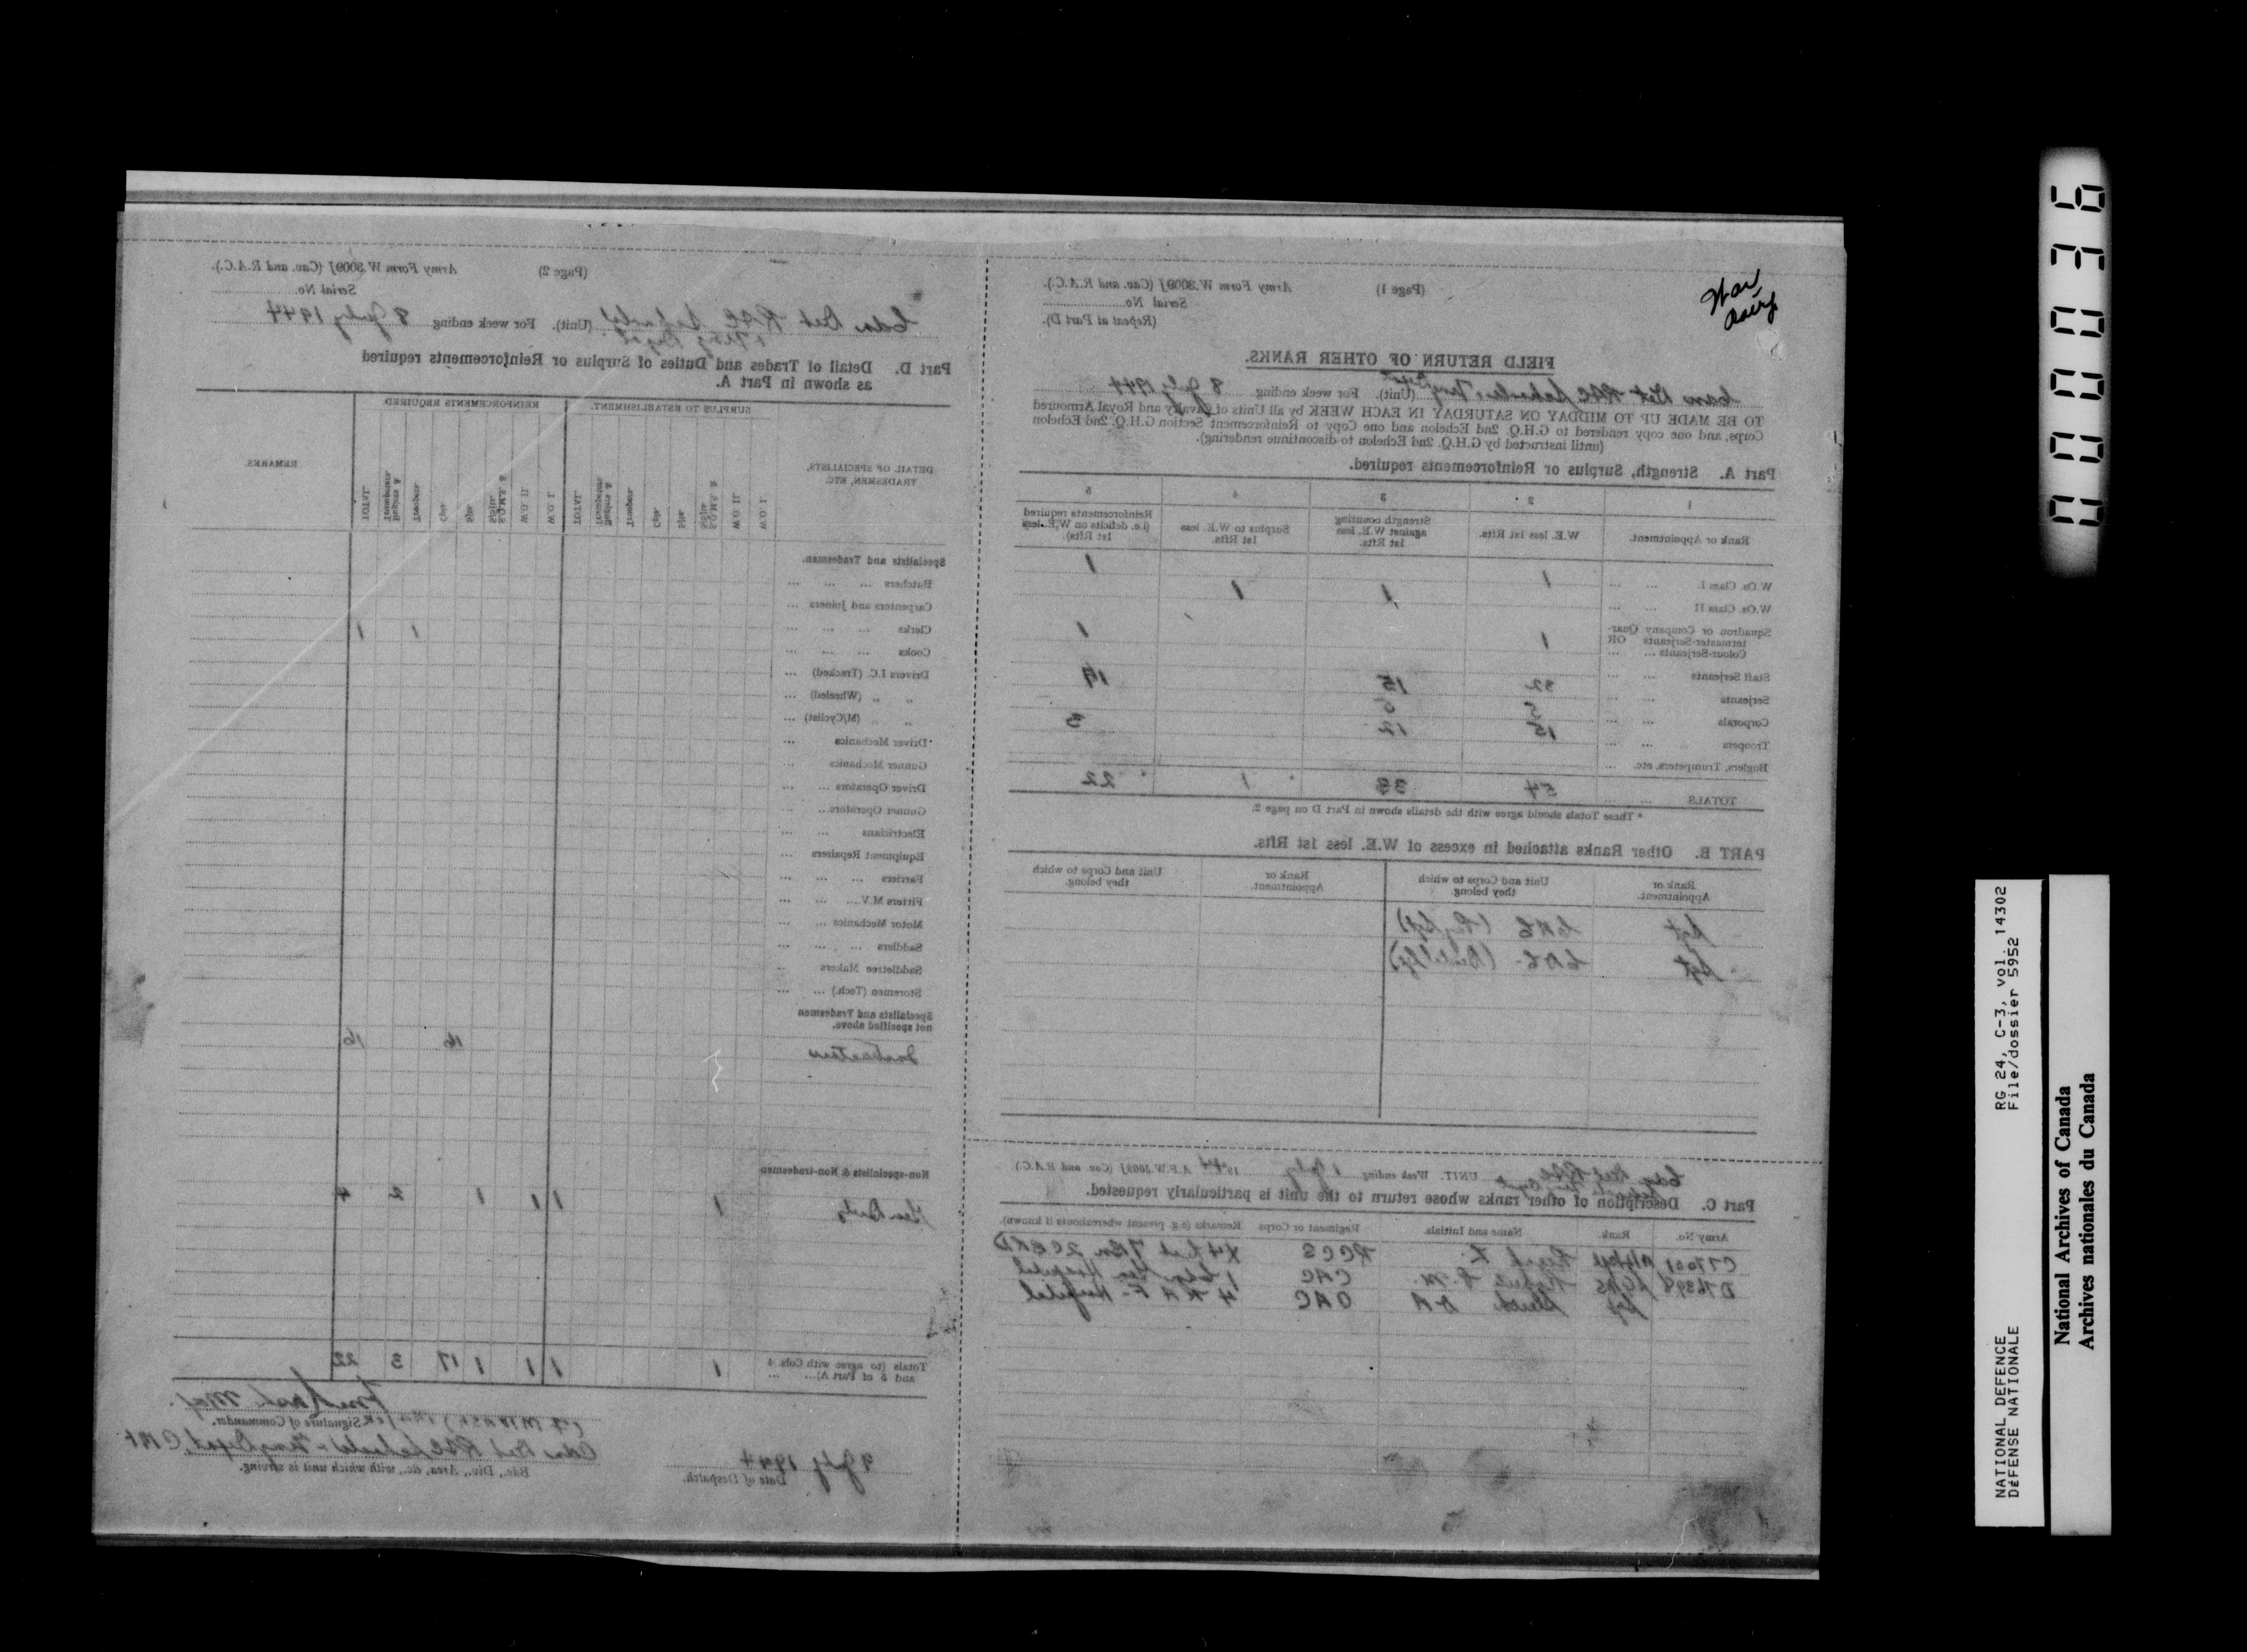 War
Diary
(Page 1)
Army Form W.3009J (Cav. and R.A.C.).
Serial No.
(Repeat at Part D).
FIELD RETURN OF OTHER RANKS.
(Unit). For week ending 8 July 1944
TO BE MADE UP TO MIDDAY ON SATURDAY IN EACH WEEK by all Units of Cavalry and Royal Armoured
Corps, and one copy rendered to G.H.Q. 2nd Echelon and one Copy to Reinforcement Section G.H.Q. 2nd Echelon
(until instructed by G.H.Q. 2nd Echelon to discontinue rendering).
Part A. Strength, Surplus or Reinforcements required.
1 2 3 4 5
Rank or Appointment.
W.E. less 1st Rfts.
Strength counting
against W.E. less
1st Rfts.
Surplus to W.E. less
1st Rfts.
Reinforcements required
(i.e. deficits on W.E. less
1st Rfts).
W.Os. Class I. ... ... 1 1
W.Os. Class II ... ... 1 1
Squadron or Company Quar-
termaster-Serjeants OR
Colour-Serjeants ... ... 1 1
Staff Serjeants ... ...
Serjeants ... ... 32 15 17
Corporals ... ... 5 5
Troopers ... ... 15 12 3
Buglers, Trumpeters, etc. ...
TOTALS ... ... 54 33 1 22
* These Totals should agree with the details shown in Part D on page 2.
PART B. Other Ranks attached in excess of W.E. less 1st Rfts.
Rank or
Appointment.
Unit and Corps to which
they belong
Rank or
Appointment.
Unit and Corps to which
they belong.
Sgt
Sgt
UNIT. Week ending 1 July 1944 A.F.W.3009J (Cav. and R.A.C.)
Part C. Description of other ranks whose return to the unit is particularly requested.
Army No. Rank. Name and Initials. Regiment or Corps Remarks (e.g. present whereabouts if known).
RCCS
CAC Hospital
Sgt Hospital
(Page 2)
Army Form W.3009J (Cav. and R.A.C.).
Serial No.
Cdn Det RAC Schools (Unit). For week ending 8 July 1944
Part D. Detail of Trades and Duties of Surplus or Reinforcements required
as shown in Part A.
DETAIL OF SPECIALISTS,
TRADESMEN, ETC.
SURPLUS TO ESTABLISHMENT.
REINFORCEMENTS REQUIRED
REMARKS.
W.O. I.
W.O. II.
S.Q.M.S. &
S/Sjts.
Sjts.
Cpls.
Troopers.
Buglers &
Trumpeters.
TOTAL.
W.O. I.
W.O. II
S.Q.M.S. &
S/Sjts.
Sjts.
Cpls.
Troopers.
Buglers &
Trumpeters.
TOTAL.
Specialists and Tradesmen.
Butchers ... ... ...
Carpenters and Joiners ...
Clerks ... ... ... 1 1
Cooks ... ... ...
Drivers I.C. (Tracked) ...
„ „ (Wheeled) ...
„ „ (M/Cyclist) ...
Driver Mechanics ...
Gunner Mechanics ...
Driver Operators ... ...
Gunner Operators... ...
Electricians ... ...
Equipment Repairers ...
Farriers ... ... ...
Fitters M.V.... ... ...
Motor Mechanics ... ...
Saddlers ... ... ...
Saddletree Makers ...
Storemen (Tech.) ... ...
Specialists and Tradesmen
not specified above.
Instructors 16 16
Non-specialists & Non-tradesmen
Gen Duty 1 1 1 1 2 4
Totals (to agree with Cols. 4
and 5 of Part A)... ... 1 1 1 1 17 3 22
Maj.
Signature of Commander.
Cdn Det RAC Schools
Bde., Div., Area, &c., with which unit is serving.
9 July 1944
Date of Despatch.
000036
NATIONAL DEFENCE RG 24, C-3, vol. 14302
DÉFENSE NATIONALE File/dossier 5952
National Archives of Canada
Archives nationales du Canada